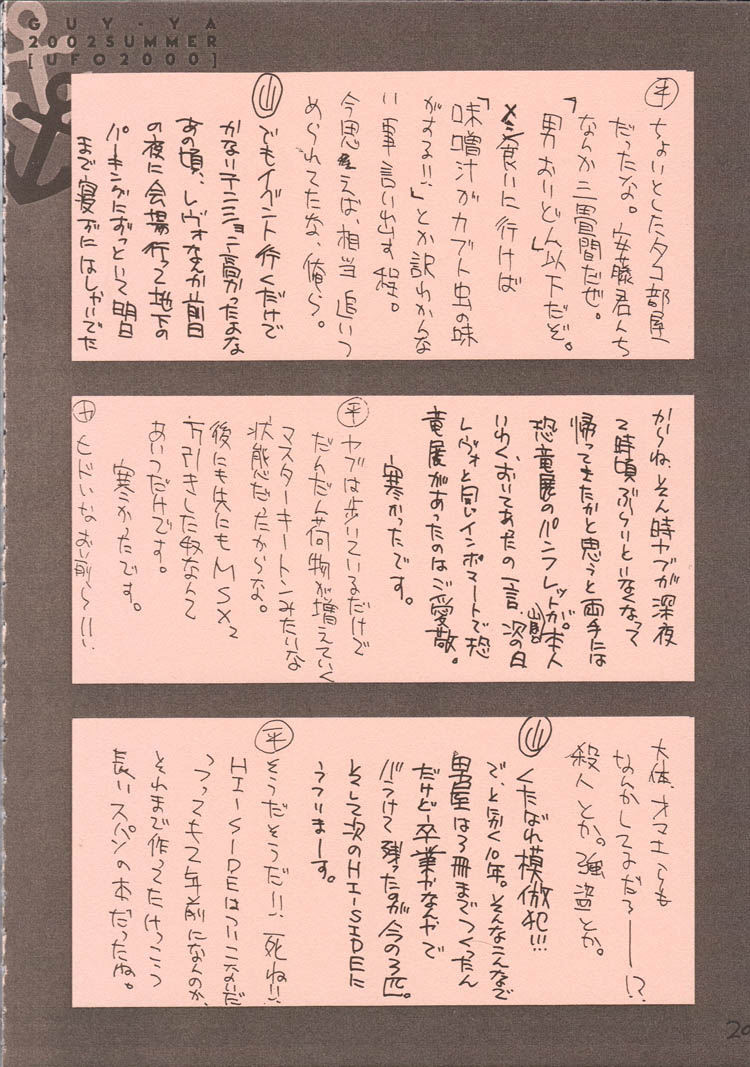 GUY-YA
2002SUMMER
[UFO2000]
平 ちょいとしたタコ部屋
だったな。安藤君んち
なんか三畳間だぜ。
「男おいどん以下だぞ。」
メシ食いに行けば
「味噌汁がカブト虫の味
がする!!」とか訳わかんな
い事言い出す程。
今思えば、相当追いつ
められてたな、俺ら。
山 でもイベント行くだけで
かないテンション高かったよな
あの頃、レヴォなんか前日
の夜に会場行って地下の
パーキングにずっといて明日
まで寝ずにはしゃいでた
からね、そん時ヤブが深夜
2時頃ぶらりといなくなって
帰ってきたかと思うと両手には
恐竜展のパンフレットが。本人
いわく、おいてあたの一言、次の日
レヴォと同じインポマートで恐
竜展があったのはご愛敬。
寒かったです。
平 ヤブは歩いているだけで
だんだん荷物が増えていく
マスターキートンみたいな
状態だったからな。
後にも先にもMSX2
万引きした奴なんて
あいつだけです。
寒かったです。
ヤ ヒドいなお前ら!!!
大体、オマエらも
なんかしてるだろ――!?
殺人とか。強盗とか。
山 くたばれ模倣犯!!!
で、と、分く10年。そんなこんなで
男屋は3冊までつくったん
だけど卒業やなんやで
バラけて残ったのが今の3匹。
そして次のHI-SIDEに
うつりまーす。
平 そうだそうだ!!死ね!!
HI-SIDEはついこないだ
っつっても2年前になんのか、
それまで作ってたけっこう
長いスパンの本だったね。